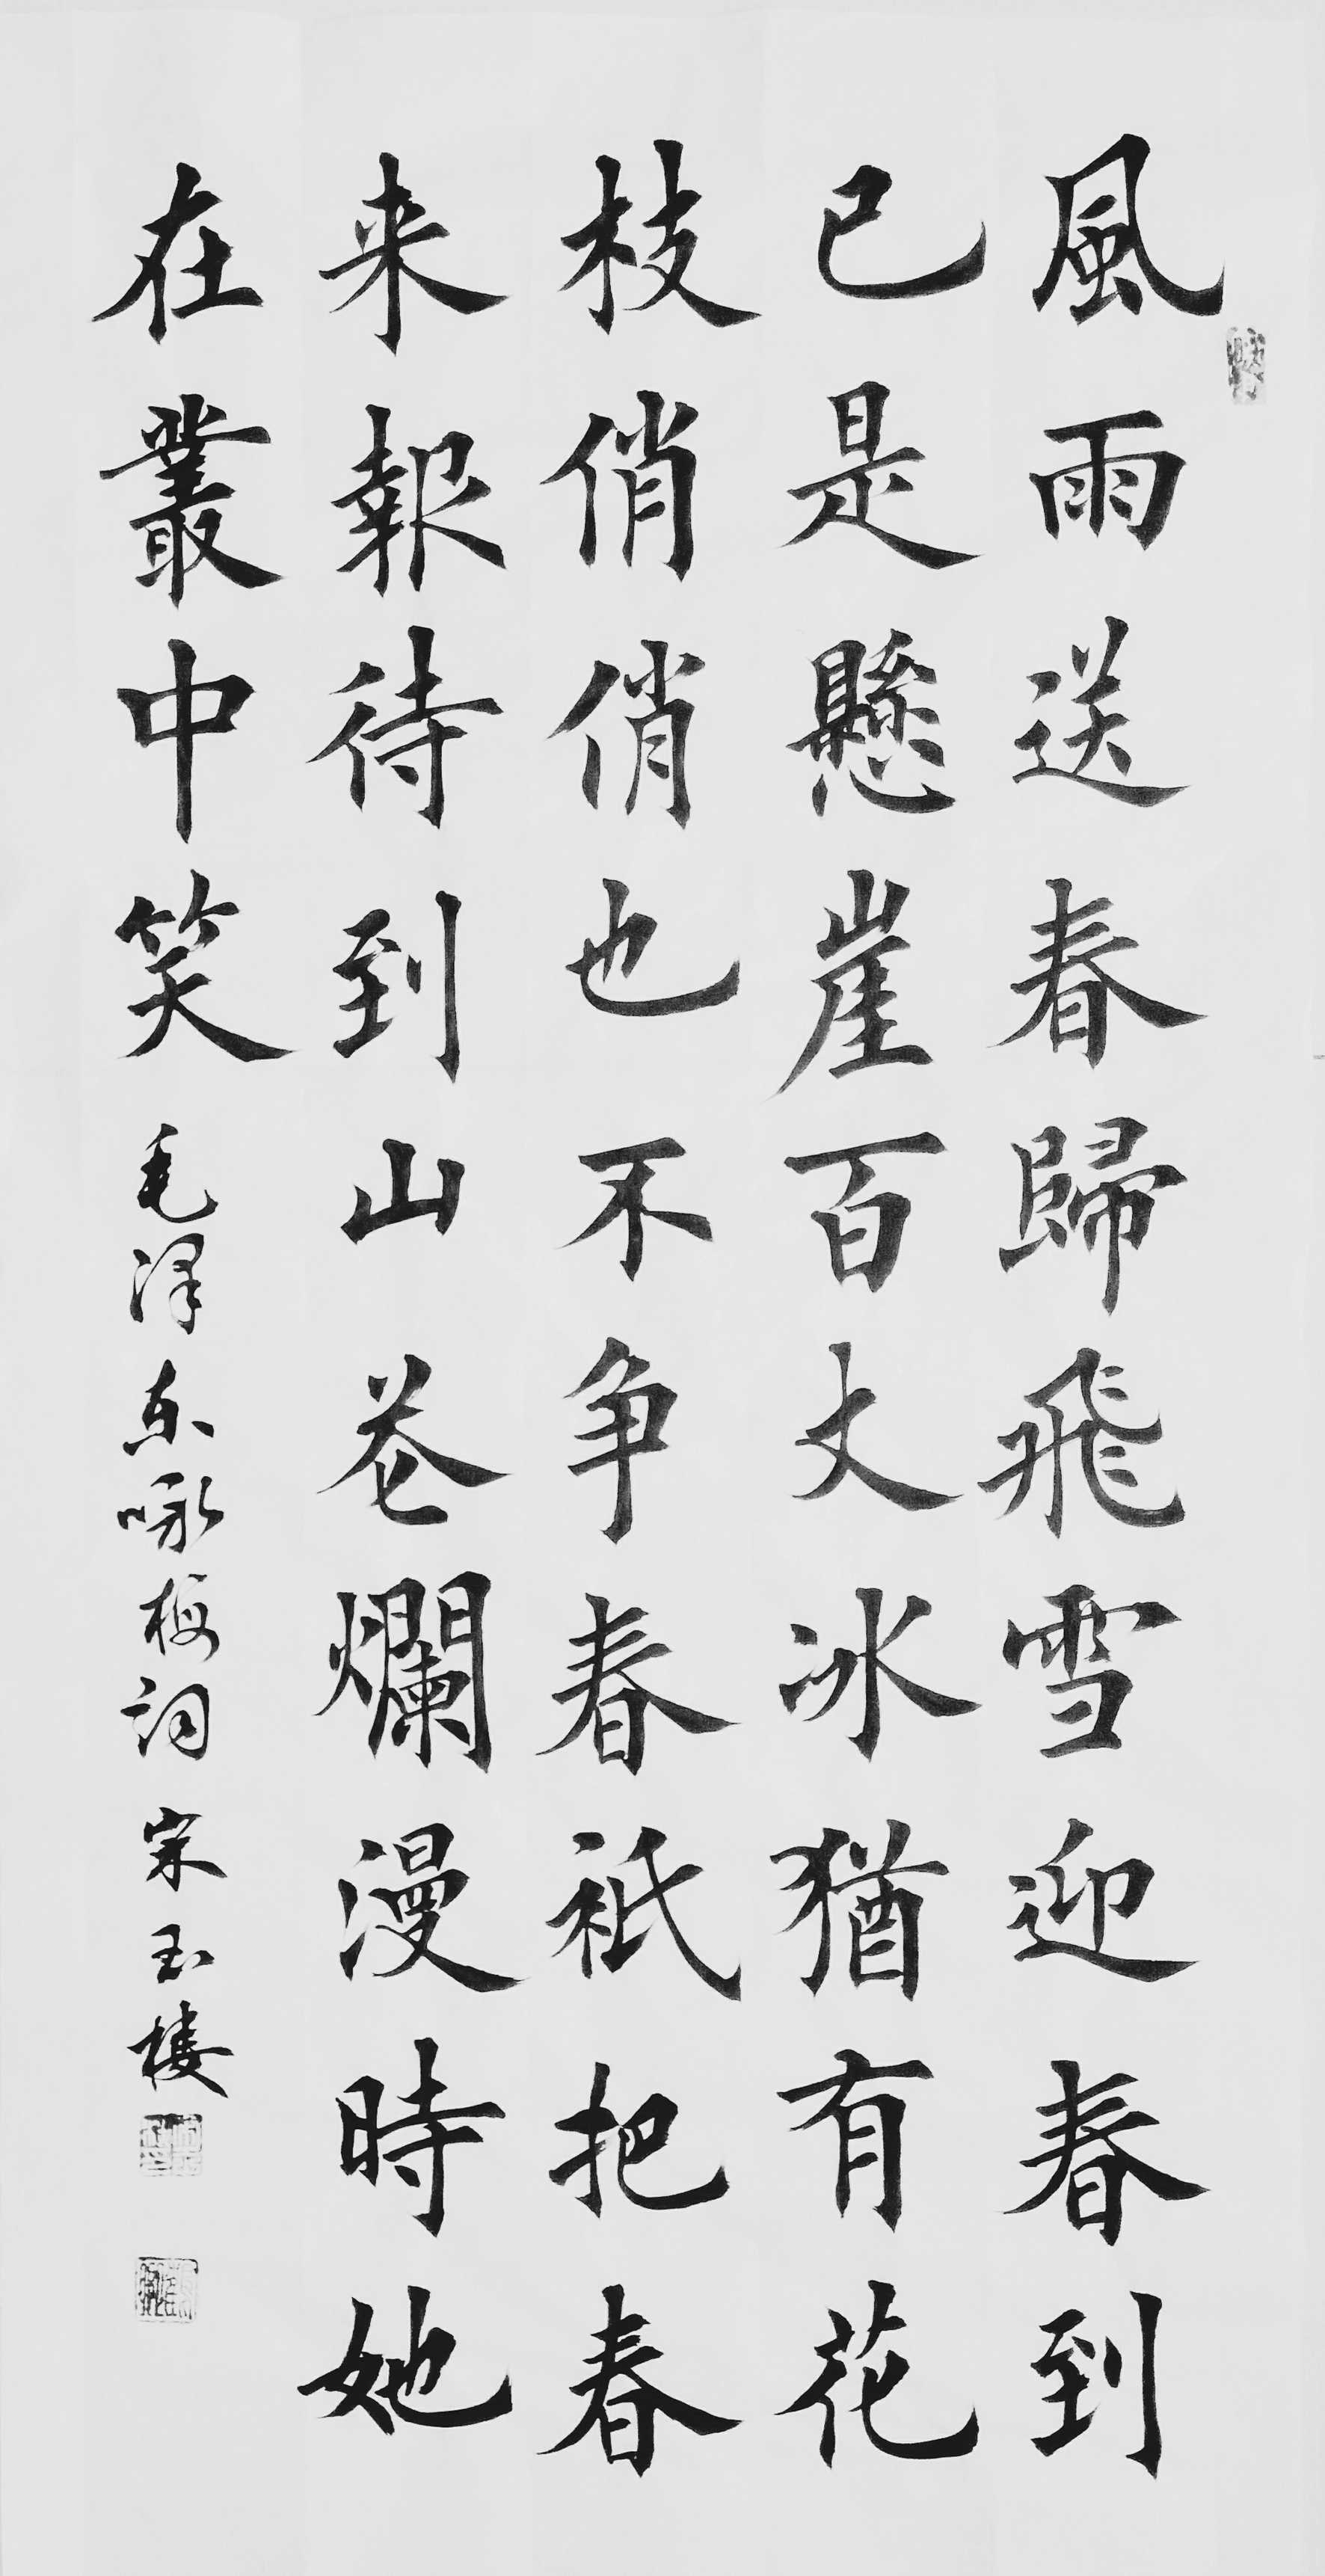 風雨送春歸飛雪迎春到
已是懸崖百丈冰猶有花
枝俏俏也不争春祇把春
来報待到山花爛漫時她
在叢中笑 毛泽东咏梅词 宋玉楼